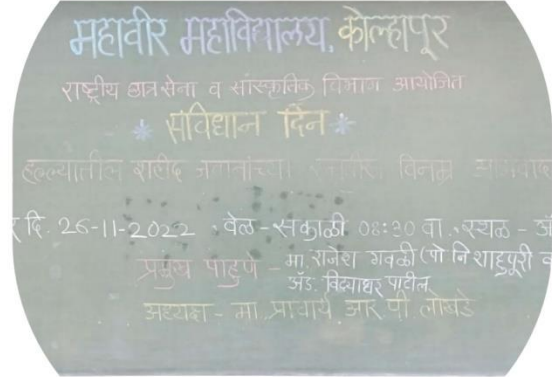 महावीर महाविद्यालय, कोल्हापूर
राष्ट्रीय छात्रसेना व सांस्कृतिक विभाग आयोजित
* संविधान दिन *
हल्ल्यातील शहीद जवानांच्या विनम्र
दि. 26-11-2022 . वेळ - सकाळी 08:30 वा. स्थळ -
प्रमुख पाहुणे - मा. राजेश गवळी (पो नि शाहुपुरी
अ‍ॅड. विद्याधर पाटील
अध्यक्ष - मा. प्राचार्य आर पी लोखंडे